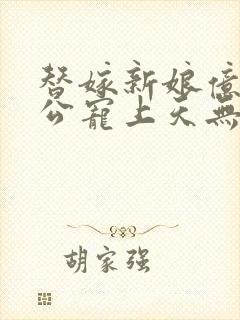 替嫁新娘億
公寵上天無
胡家强